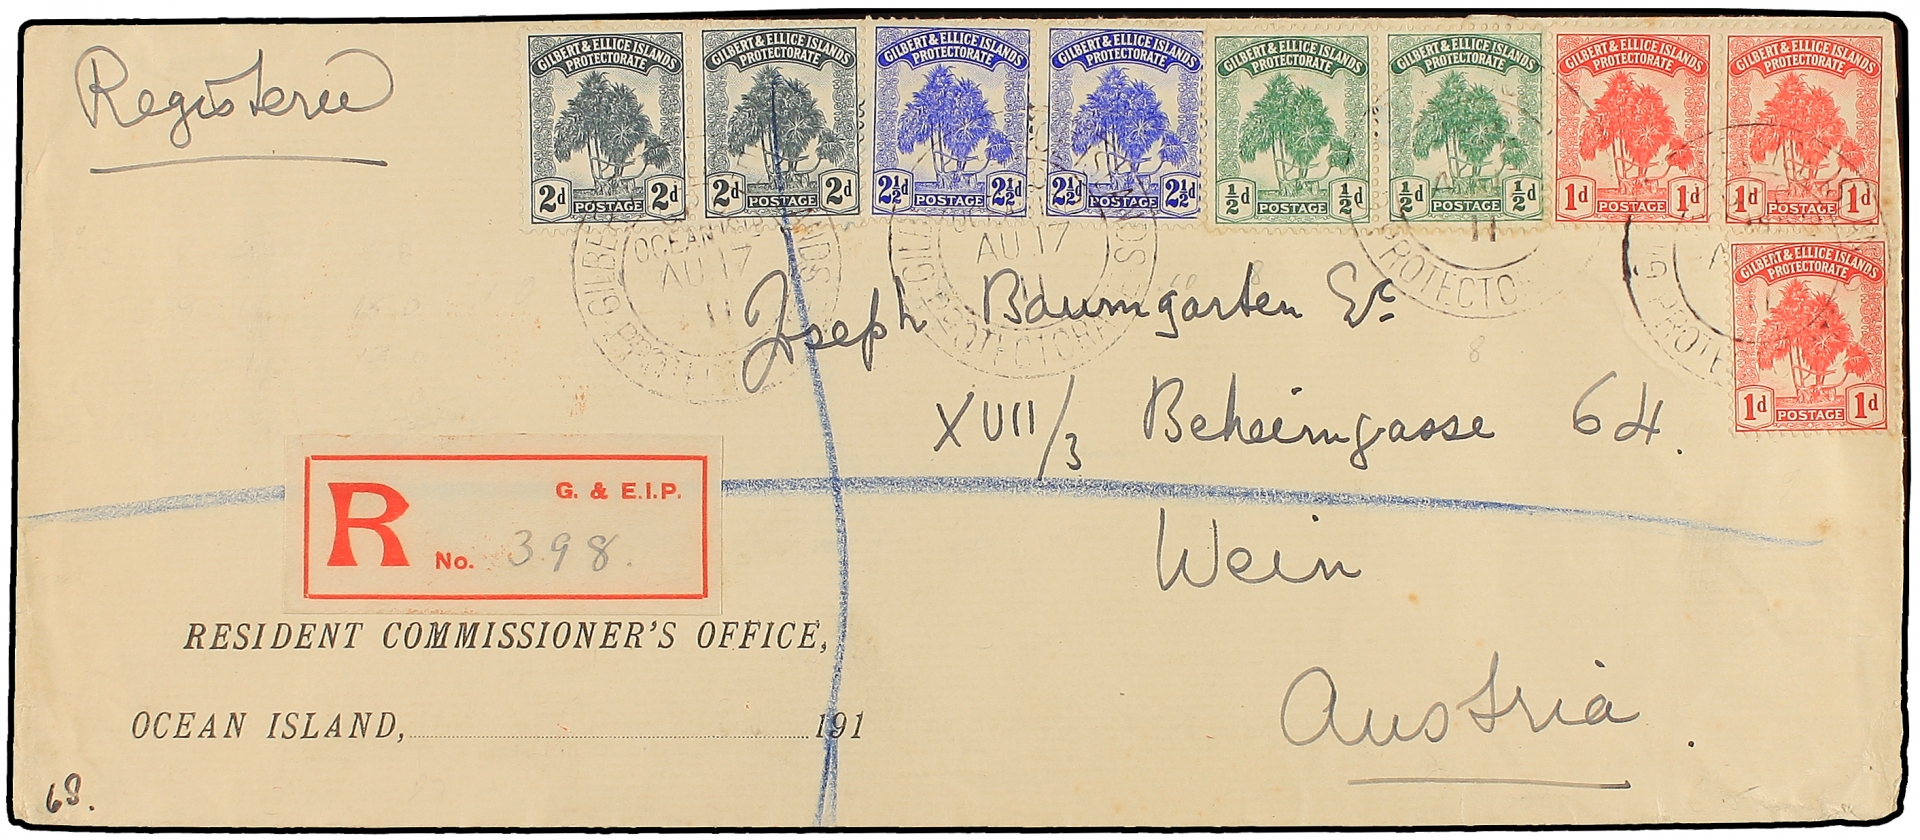 Registered
GILBERT & ELLICE ISLANDS
PROTECTORATE
2d POSTAGE 2d
GILBERT & ELLICE ISLANDS
PROTECTORATE
2d POSTAGE 2d
GILBERT & ELLICE ISLANDS
PROTECTORATE
2½d POSTAGE 2½d
GILBERT & ELLICE ISLANDS
PROTECTORATE
2½d POSTAGE 2½d
GILBERT & ELLICE ISLANDS
PROTECTORATE
½d POSTAGE ½d
GILBERT & ELLICE ISLANDS
PROTECTORATE
½d POSTAGE ½d
GILBERT & ELLICE ISLANDS
PROTECTORATE
1d POSTAGE 1d
GILBERT & ELLICE ISLANDS
PROTECTORATE
1d POSTAGE 1d
GILBERT & ELLICE ISLANDS
PROTECTORATE
1d POSTAGE 1d
OCEAN
AU 17
11
PROTECTORA
AU 17
PROTECTO
11
Joseph Baumgarten
XVII/3 Beheimgasse 64.
Wein
Austria.
R G. & E.I.P.
No. 398.
RESIDENT COMMISSIONER'S OFFICE,
OCEAN ISLAND, 191
68.
8